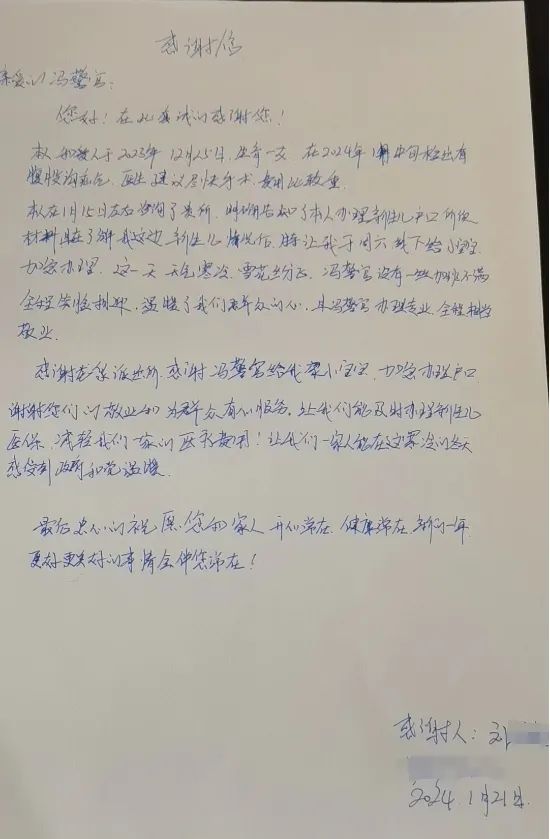 感谢信
亲爱的冯警官：
您好！在此真诚的感谢您！
本人和爱人于2023年12月25日，生育一女，在2024年1月中旬检出有
腹股沟疝气，医生建议尽快手术，费用比较重。
本人在1月15日左右咨询了贵所，明确告知了本人办理新生儿户口所便
材料，且在了解我这边新生儿情况后，特让我于周六线下给小宝宝
加急办理，这一天天气寒冷，雪花纷飞，冯警官没有一丝加班不满
全程笑脸相迎，温暖了我们群众的心，且冯警官办理专业，全程相当
敬业。
感谢派出所，感谢冯警官给我家小宝宝，加急办理户口
谢谢您们的敬业和为群众有心服务，让我们能及时办理新生儿
医保，减轻我们一家的医疗费用！让我们一家人能在这寒冷的冬天
感受到政府和党温暖。
最后忠心的祝愿您和家人开心常在，健康常在，新的一年
更好更美好的事情会伴您常在！
感谢人：刘
2024.1月21日.